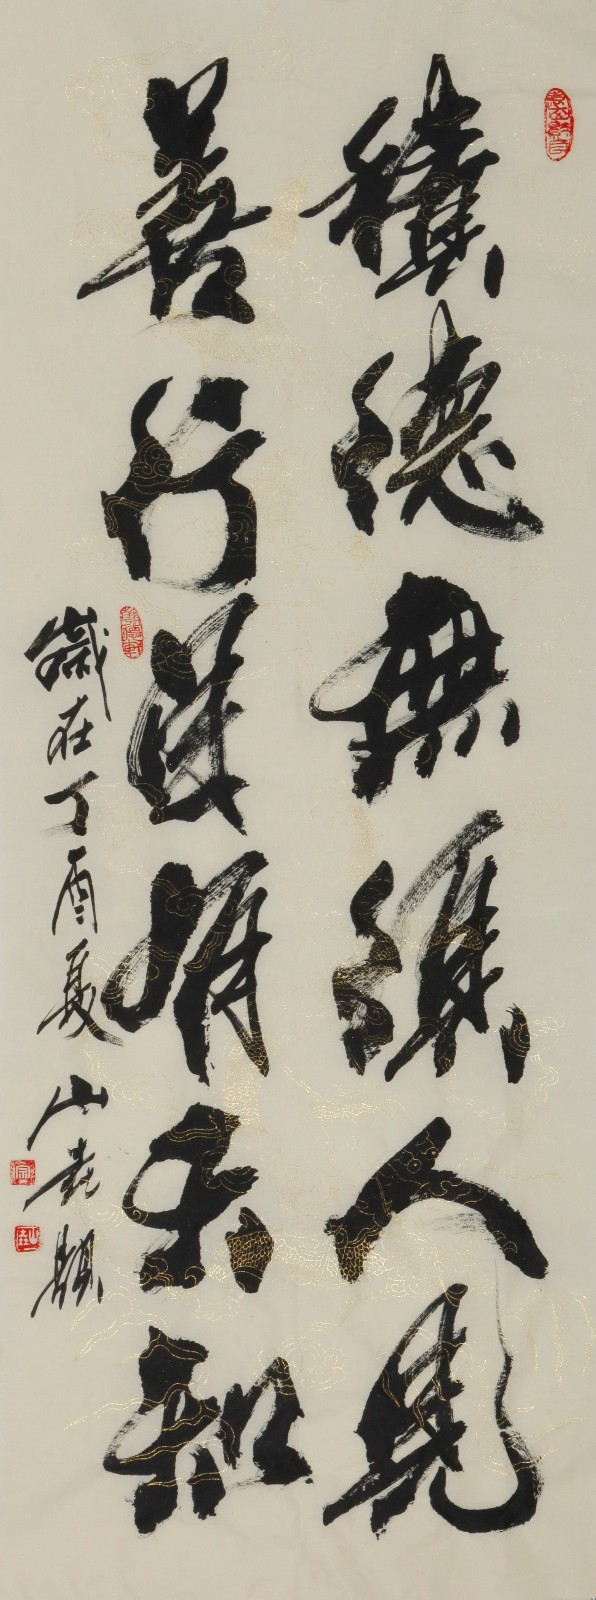 積德無須人見
善行自有天知
歲在丁酉夏 山 題